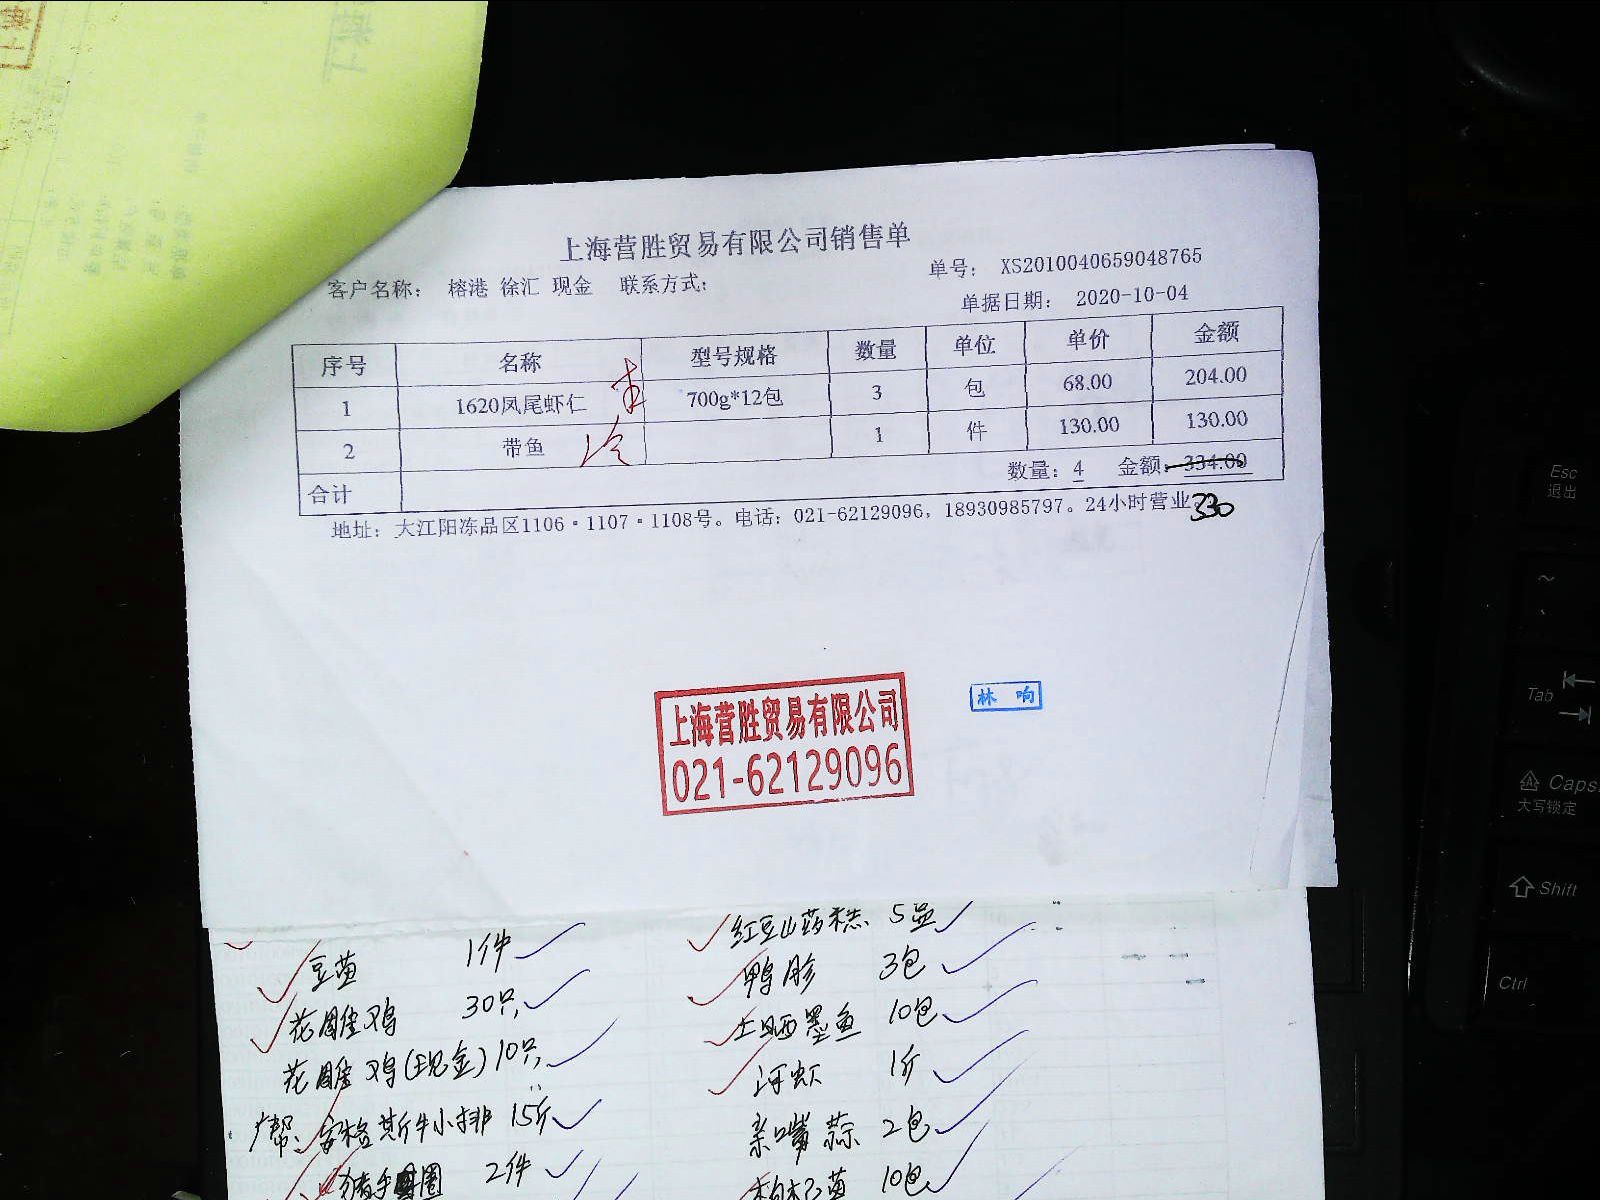 上海营胜贸易有限公司销售单
客户名称： 榕港 徐汇 现金 联系方式： 单号： XS2010040659048765
单据日期： 2020-10-04
序号 名称 型号规格 数量 单位 单价 金额
1 1620凤尾虾仁 700g*12包 3 包 68.00 204.00
2 带鱼 冷 1 件 130.00 130.00
合计 数量：4 金额：334.00
330
地址：大江阳冻品区1106·1107·1108号。电话：021-62129096，18930985797。24小时营业
上海营胜贸易有限公司
021-62129096
林 响
豆苗 1件
花雕鸡 30只
花雕鸡(现金) 10只
安格斯牛小排 15斤
2件
红豆山药糕 5盒
鸭胗 3包
土晒墨鱼 10包
河虾 1斤
亲嘴蒜 2包
枸杞苗 10包
Esc
退出
Tab
Caps
大写锁定
Shift
Ctrl